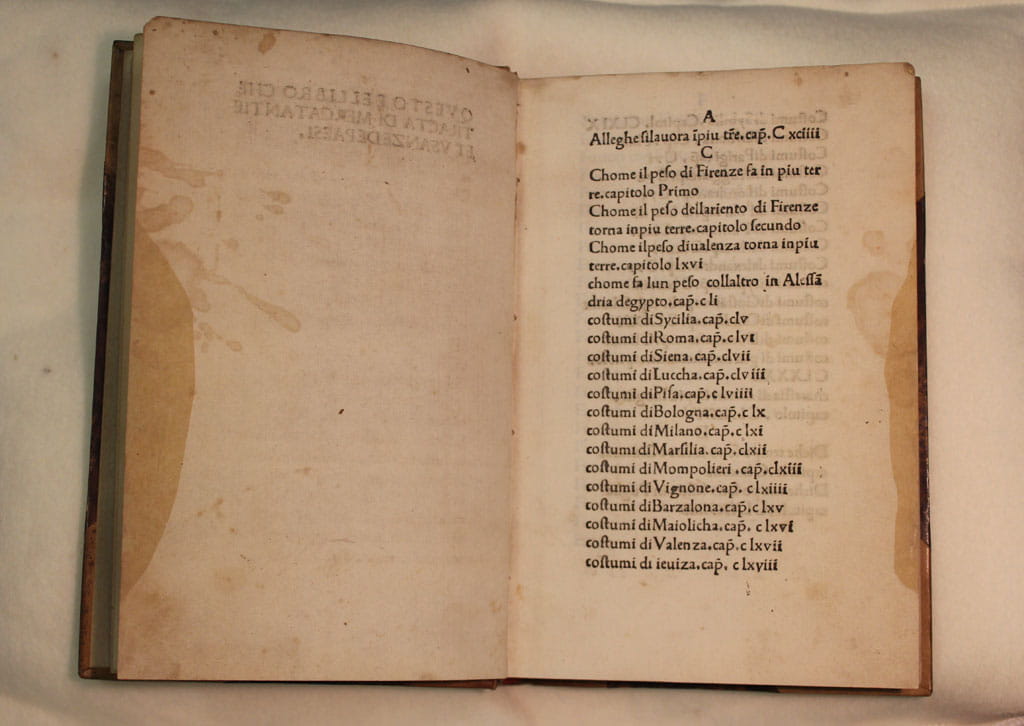 QVESTO E ELLIBRO CHE
TRACTA DI MERCATANTIE
ET VSANZEDEPAESI.
A
Alleghe ſilauora īpiu tr̄e. cap̄. C xciiii
C
Chome il peſo di Firenze fa in piu ter
re.capitolo Primo
Chome il peſo dellariento di Firenze
torna inpiu terre.capitolo ſecundo
Chome ilpeſo diualenza torna inpiu
terre.capitolo lxvi
chome fa lun peſo collaltro in Aleſſā
dria degypto.cap̄.c li
coſtumi diSycilia.cap̄.clv
coſtumi diRoma.cap̄.c lvi
coſtumi diSiena.cap̄.clvii
coſtumi diLuccha.cap̄.clv iii
coſtumi diPiſa.cap̄.c lviiii
coſtumi diBologna.cap̄.c lx
coſtumi diMilano.cap̄.c lxi
coſtumi diMarſilia.cap̄.clxii
coſtumi diMompolieri .cap̄.clxiii
coſtumi diVignone.cap̄. c lxiiii
coſtumi diBarzalona.cap̄.c lxv
coſtumi diMaiolicha.cap̄. c lxvi
coſtumi diValenza.cap̄.c lxvii
coſtumi di ieuiza.cap̄. c lxviii